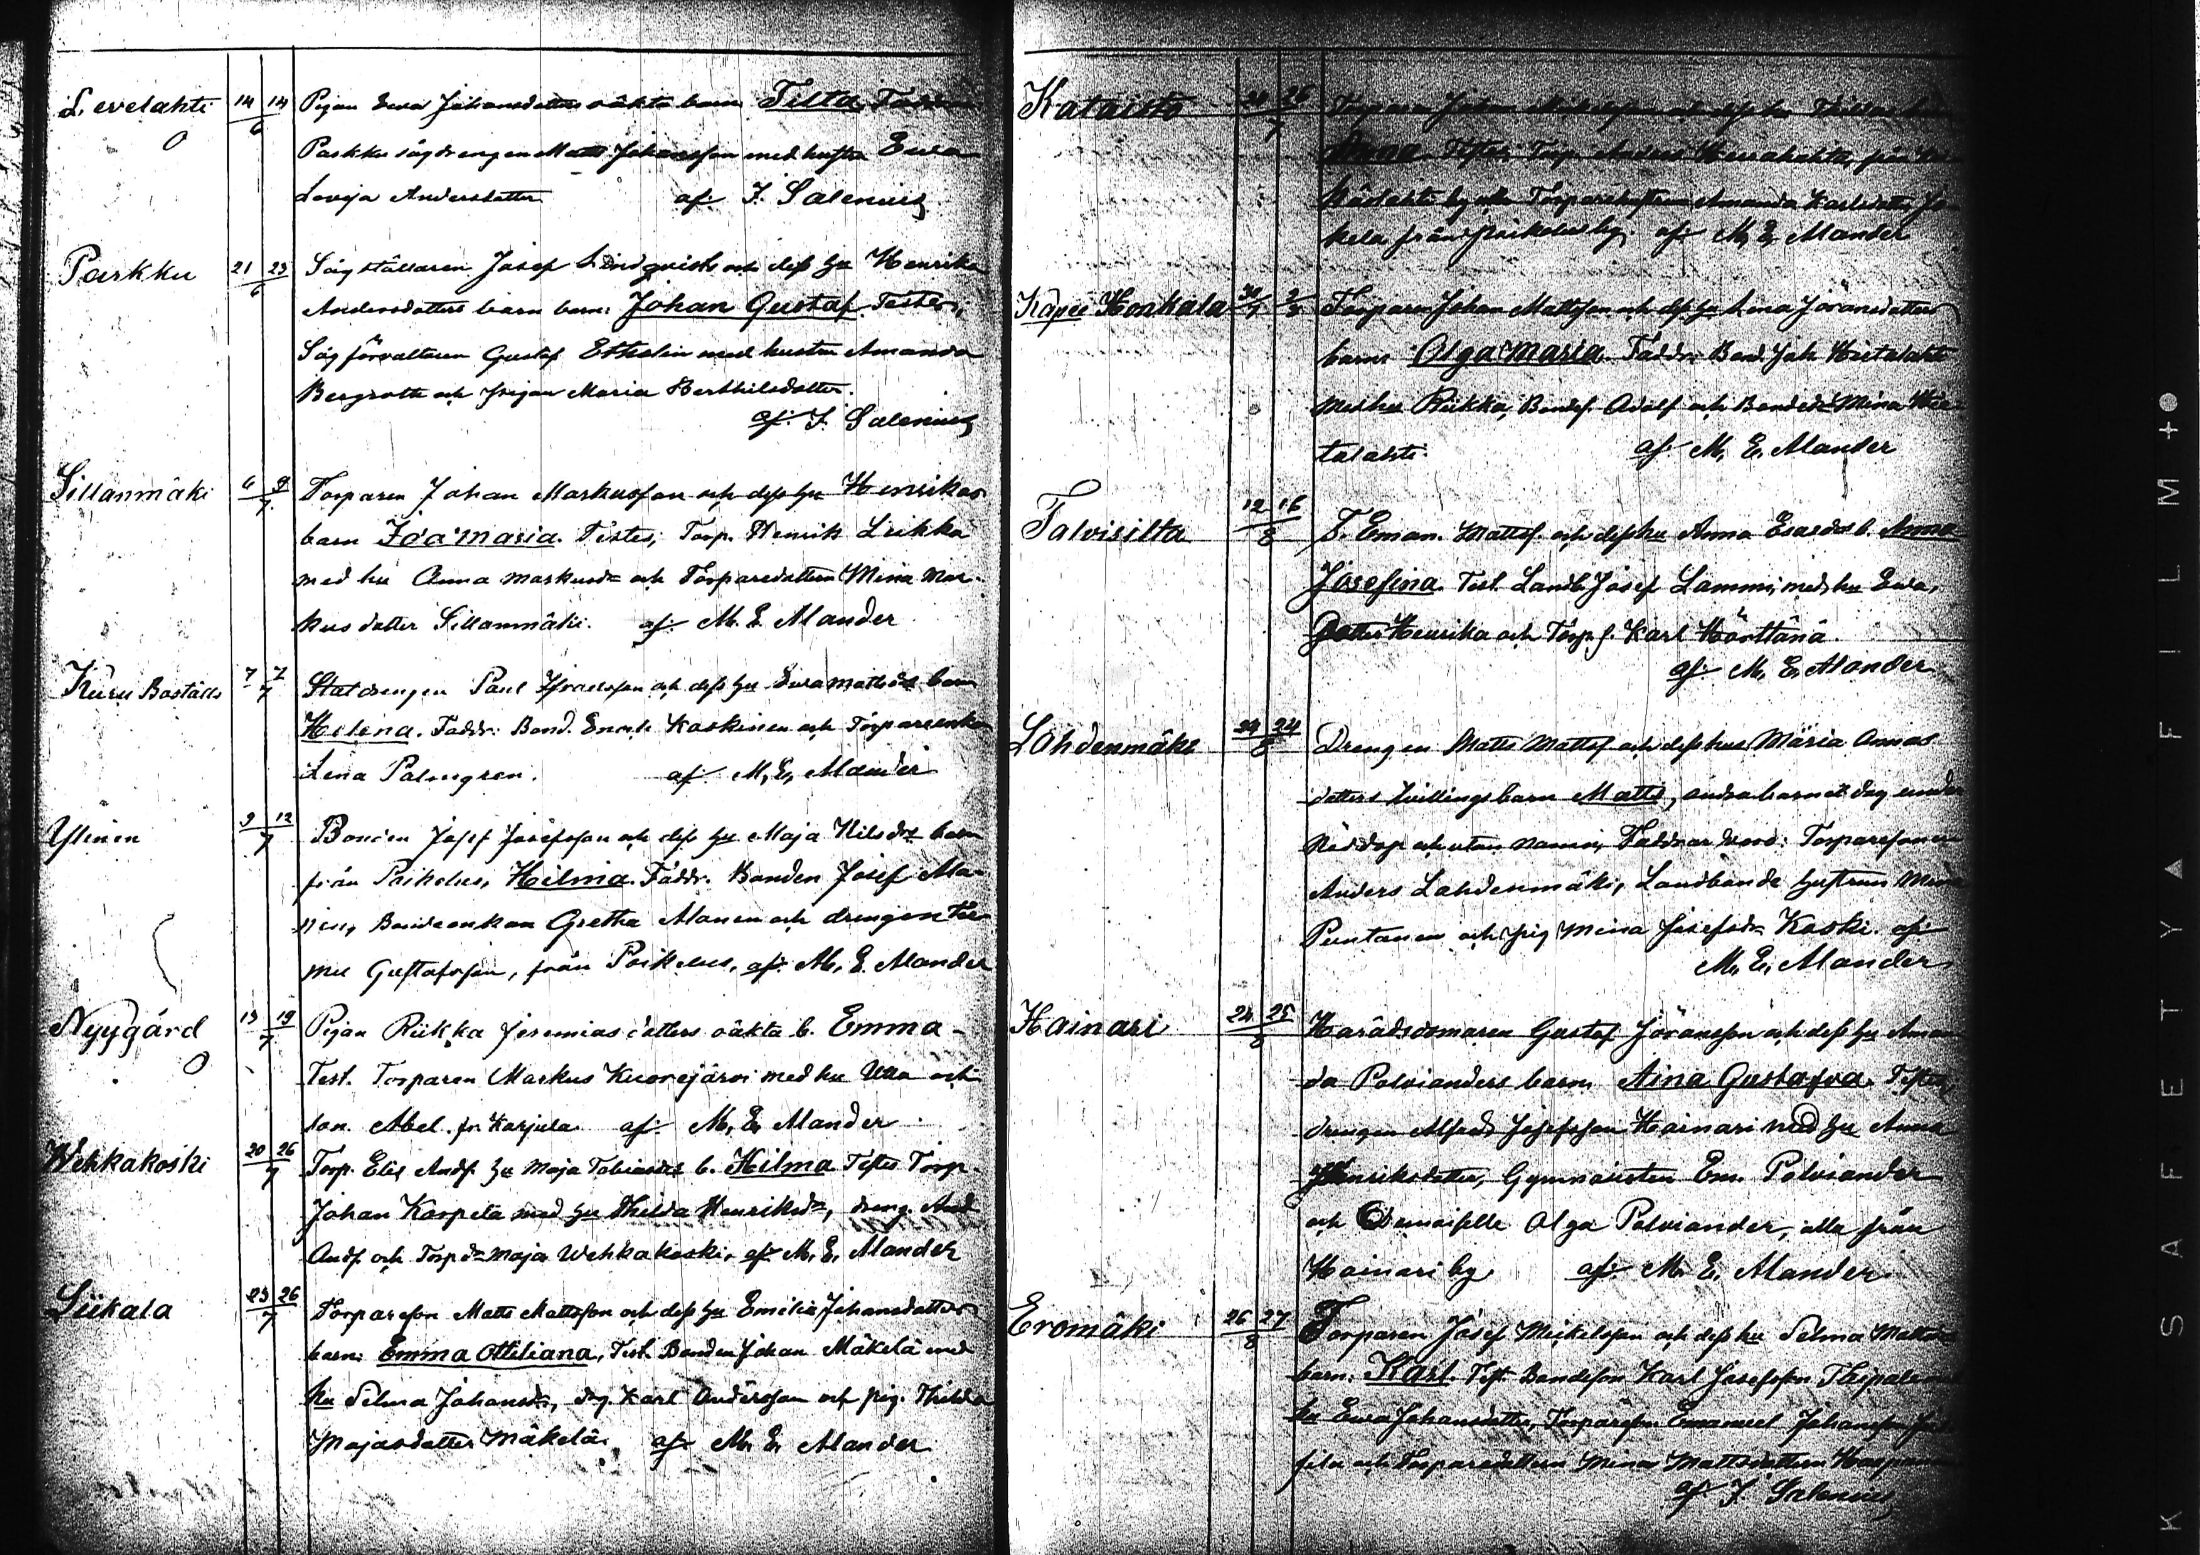 Levelahti 14 14/6 Pigan Ewa Johansdotters oäkta barn Tilta. Faddrar
O Parkku sågdrengen Matts Johansson med hustru Ewa
Lovisa Andersdotter af J. Salenius
Parkku 21 23/6 Sågställaren Josef Lindqvists och dess hu Henrika
Andersdotters barn: Johan Gustaf. Testes;
Sågförvaltaren Gustaf Etholin med hustru Amanda
Bergroth och pigan Maria Berthilsdotter.
af. J. Salenius
Sillanmäki 6 9/7 Torparen Johan Markusson och dess hu Henrikas
barn Ida Maria. Testes; Torp. Henrik Leikka
med hu Anna Markusdr och Torparedottern Mina Mar-
kusdotter Sillanmäki. af. M. E. Alander
Kuru Boställe 7 7/7 Statdrengen Paul Israelsson och dess hu Ewa Mattsdrs barn
Helena. Faddr. Bond. Enok Koskinen och Torpareenkan
Lena Palmgren. af M. E. Alander
Ylinen 9 12/7 Bonden Josef Josefsson och dess hu Maja Nilsdrs barn
från Poikelus, Hilma. Faddr. Bonden Josef Ala-
nen, Bondeenkan Gretha Alanen och drengen Her
man Gustafsson, från Poikelus. af. M. E. Alander
Nyygård 13 19/7 Pigan Riikka Jeremiasdotters oäkta b. Emma -
O Test. Torparen Markus Kuorejärvi med hu Ulla och
son Abel. fr. Karjula af. M. E. Alander
Wehkakoski 20 26/7 Torp. Elis Andss. hu Maja Tobiasdrs b. Hilma Testes Torp.
Johan Karpela med hu Thilda Henriksdr, dreng. And
Andss. och Torpdr Maja Wehkakoski. af M. E. Alander
Liikala 23 26/7 Torpareson Matts Mattsson och dess hu Emilia Johansdotters
barn: Emma Ottiliana, Test. Bonden Johan Mäkelä med
hu Selma Johansdr, dg. Karl Andersson och pig. Thilda
Majasdotter Mäkelä. af M. E. Alander
Kataisto 26/7 Torparen Johan och dess hu
Anna. Testes; Torp. Anders från
by och Torparehustrun Amanda Karlsdotter
kela från Poikelus by. af M. E. Alander
Käpee Honkala 30/7 2/8 Torparen Johan Mattsson och dess hu Lena Jöransdotters
barn: Olga Maria. Faddr. Bond. Joh. Hietalahti
med hu Riikka, Bondes. Adolf och Bondedr Mina Hie-
talahti. af M. E. Alander
Talvisilta 12 16/8 T. Eman. Mattss. och dess hu Anna Esasdrs b. Anna
Josefina. Test. Landb. Josef Lammi, med hu Ewa,
Dotter Henrika och Torp.s. Karl Hörttänä.
af M. E. Alander
Lahdenmäki 24 24/8 Drengen Matts Mattss. och dess hus Maria Annas
dotters tvillingsbarn Matts, andra barnet dog under
nöddop och utan namn, Faddrar woro: Torparesonen
Anders Lahdenmäki, Landbonde hustrun Mina
Puntanen och pig Mina Josefsdr Koski. af.
M. E. Alander
Hainari 24 25/8 Häradsdomaren Gustaf Jöransson och dess hu Aman
da Polvianders barn, Aina Gustafva. Testes
drengen Alfred Josefsson Hainari med hu Anna
Henriksdotter, Gymnasisten Em. Polviander
och Demoiselle Olga Polviander, alla från
Hainari by af. M. E. Alander
Eromäki 26 27/8 Torparen Josef Mickelsson och dess hu Selma Matts
barn. Karl. Test. Bondeson Karl Josefsson
hu Ewa Johansdotter, Torpareson Emanuel Johansson
pila och Torparedottern Mina Mattsdottern
af J. Salenius
K SAFETY▲FILM+●